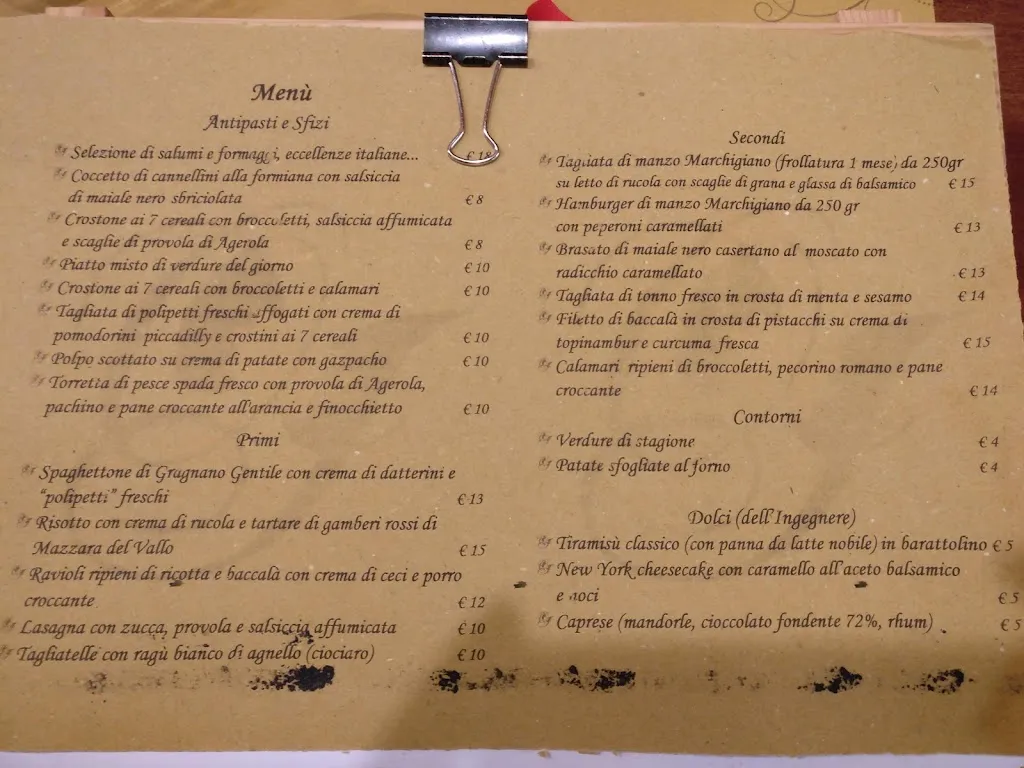 Menù
Antipasti e Sfizi
Selezione di salumi e formaggi, eccellenze italiane... € 18
Coccetto di cannellini alla formiana con salsiccia
di maiale nero sbriciolata € 8
Crostone ai 7 cereali con broccoletti, salsiccia affumicata
e scaglie di provola di Agerola € 8
Piatto misto di verdure del giorno € 10
Crostone ai 7 cereali con broccoletti e calamari € 10
Tagliata di polipetti freschi affogati con crema di
pomodorini piccadilly e crostini ai 7 cereali € 10
Polpo scottato su crema di patate con gazpacho € 10
Torretta di pesce spada fresco con provola di Agerola,
pachino e pane croccante all'arancia e finocchietto € 10
Primi
Spaghettone di Gragnano Gentile con crema di datterini e
"polipetti" freschi € 13
Risotto con crema di rucola e tartare di gamberi rossi di
Mazzara del Vallo € 15
Ravioli ripieni di ricotta e baccalà con crema di ceci e porro
croccante € 12
Lasagna con zucca, provola e salsiccia affumicata € 10
Tagliatelle con ragù bianco di agnello (ciociaro) € 10
Secondi
Tagliata di manzo Marchigiano (frollatura 1 mese) da 250gr
su letto di rucola con scaglie di grana e glassa di balsamico € 15
Hamburger di manzo Marchigiano da 250 gr
con peperoni caramellati € 13
Brasato di maiale nero casertano al moscato con
radicchio caramellato € 13
Tagliata di tonno fresco in crosta di menta e sesamo € 14
Filetto di baccalà in crosta di pistacchi su crema di
topinambur e curcuma fresca € 15
Calamari ripieni di broccoletti, pecorino romano e pane
croccante € 14
Contorni
Verdure di stagione € 4
Patate sfogliate al forno € 4
Dolci (dell'Ingegnere)
Tiramisù classico (con panna da latte nobile) in barattolino € 5
New York cheesecake con caramello all'aceto balsamico
e noci € 5
Caprese (mandorle, cioccolato fondente 72%, rhum) € 5